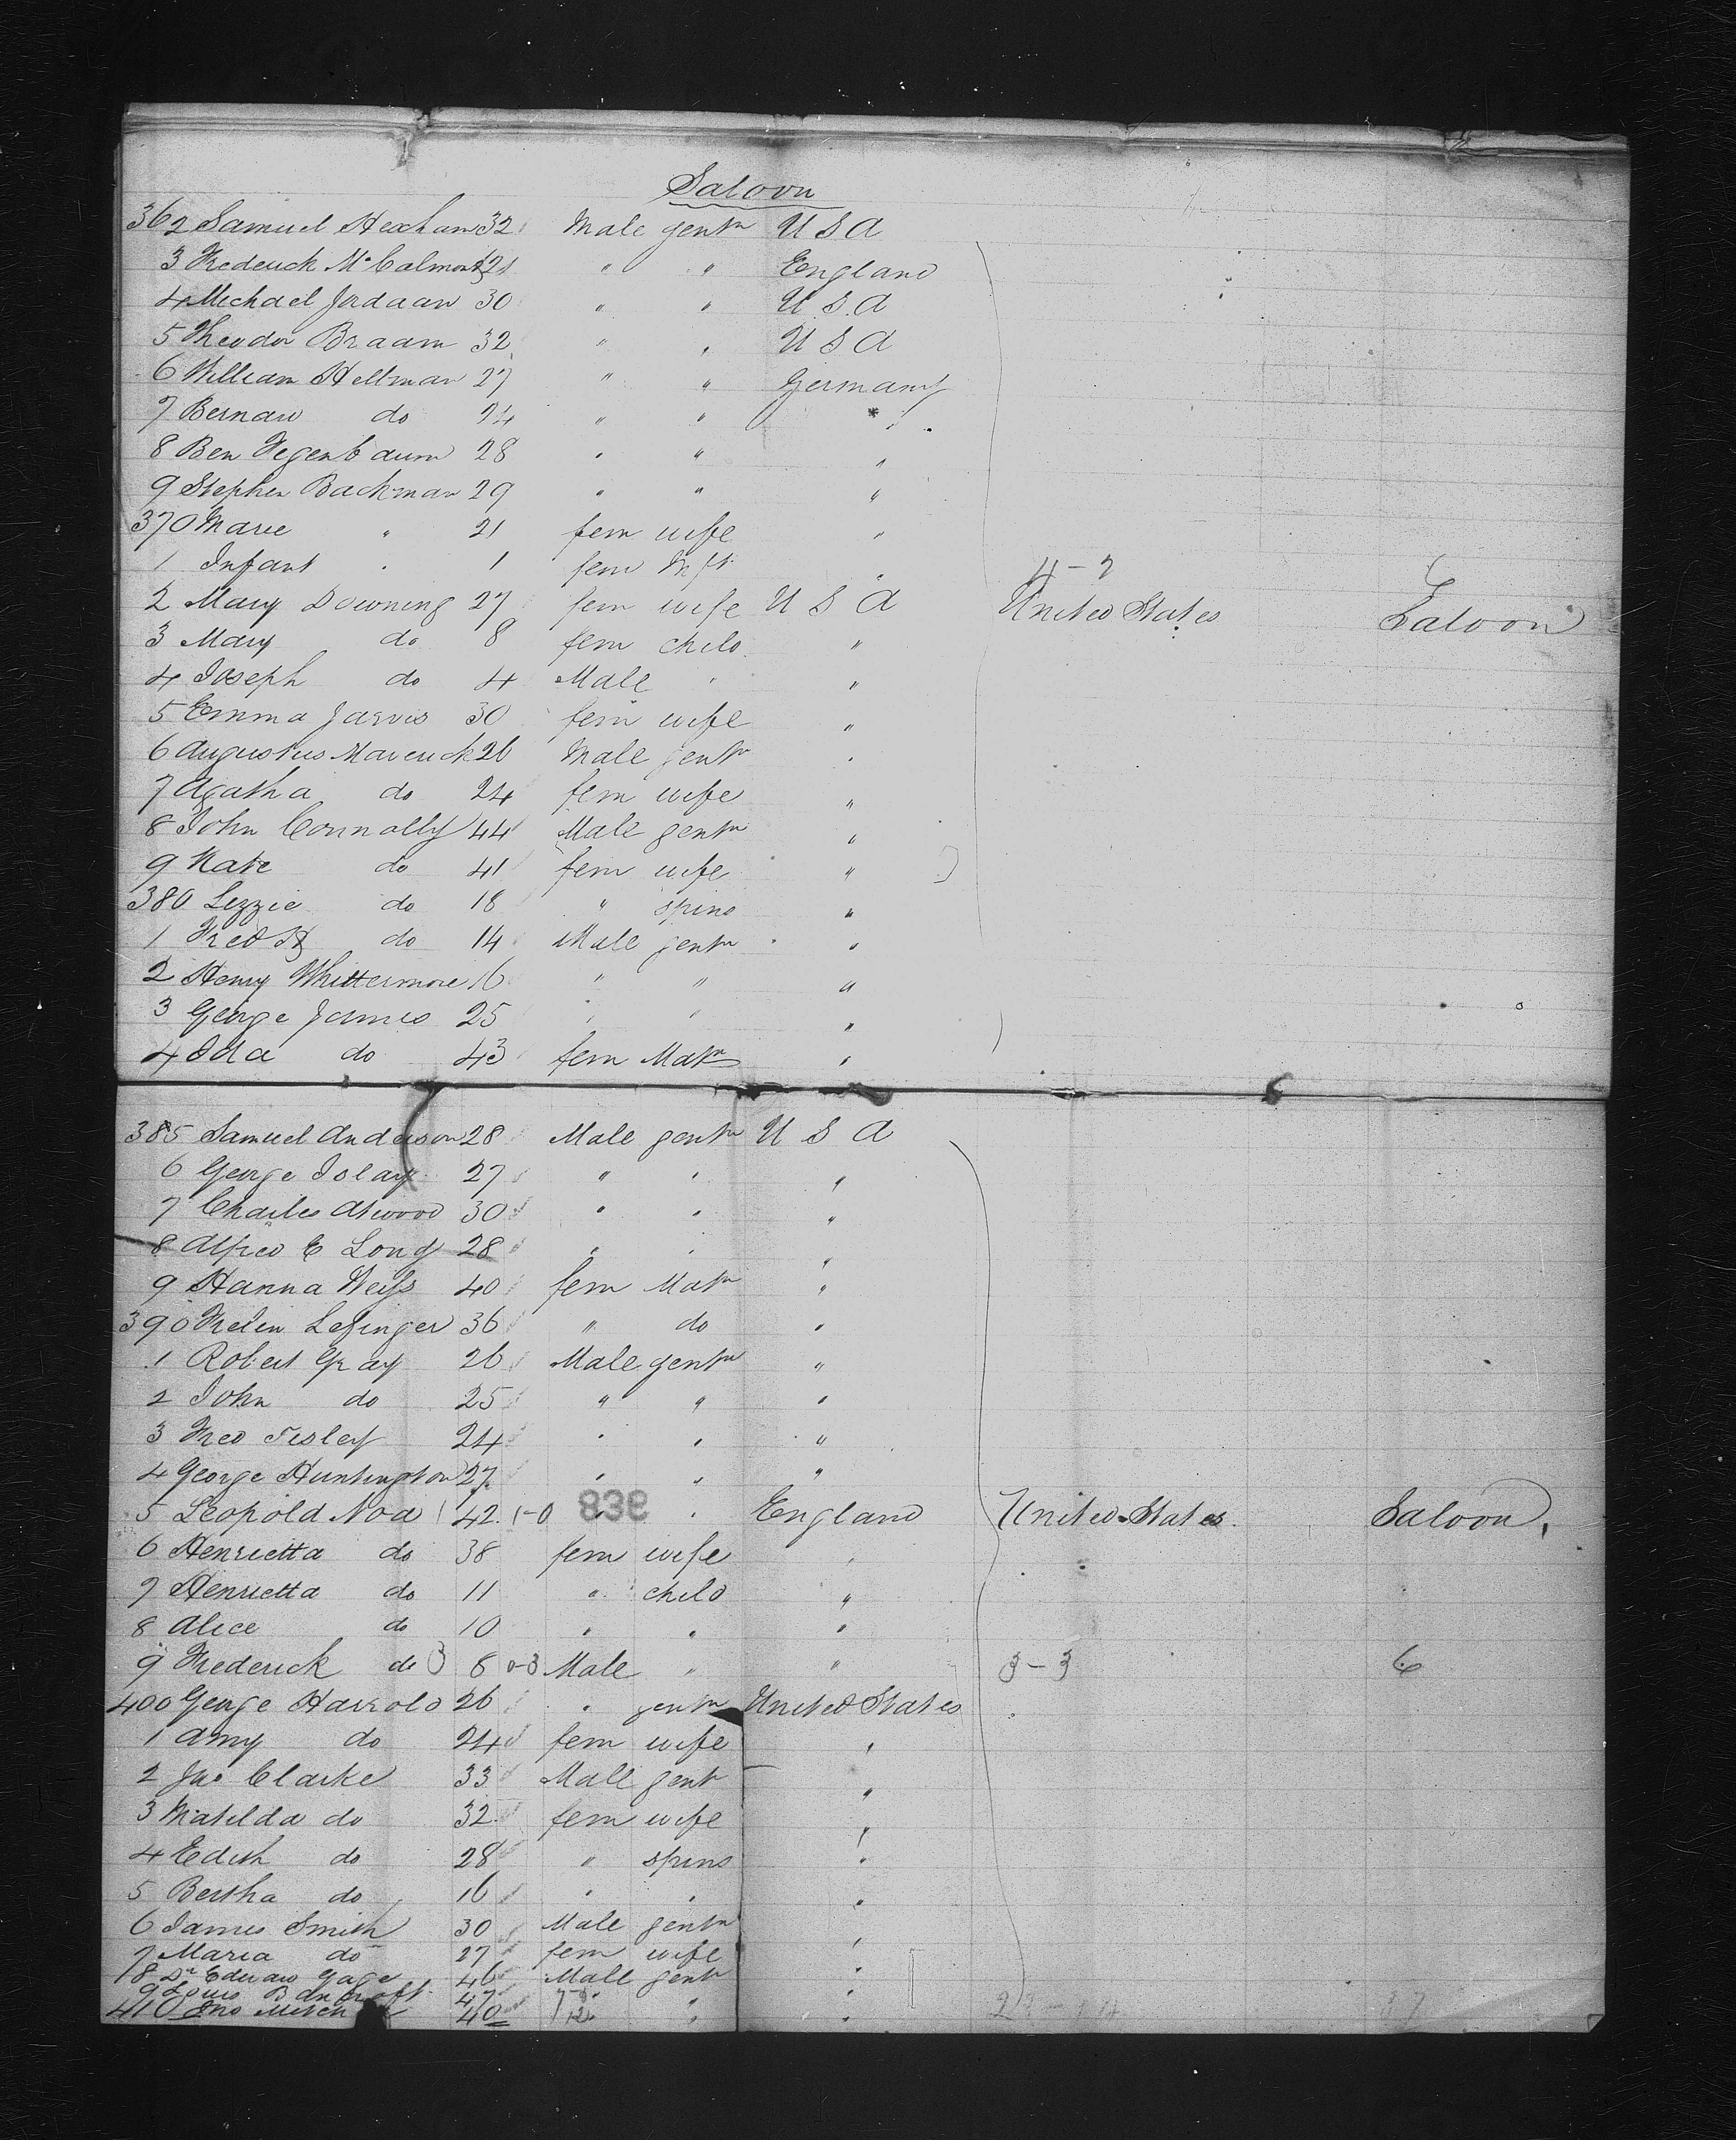 Saloon
362 Samuel Hexham 32 Male gentn U S A
3 Frederick McCalmont 21 " " England
4 Michael Jordaan 30 " " U.S.A
5 Theodor Braam 32 " " U S A
6 William Heltman 27 " " Germany
7 Bernard do 24 " " "
8 Ben Fegenbaum 28 " " "
9 Stephen Backman 29 " " "
370 Marie " 21 fem wife "
1 Infant " 1 fem Inft "
4-2 6
2 Mary Downing 27 fem wife U S A United States Saloon
3 Mary do 8 fem child "
4 Joseph do 4 Male " "
5 Emma Jarvis 30 fem wife "
6 Augustus Maverick 26 Male gentn "
7 Agatha do 24 fem wife "
8 John Connolly 44 Male gentn "
9 Kate do 41 fem wife "
380 Lizzie do 18 " spins "
1 Fred H do 14 Male gentn "
2 Henry Whittermore 16 " " "
3 George James 25 " " "
4 Ida do 43 fem Matn "
385 Samuel Anderson 28 Male gentn U S A
6 George Islay 27 " " "
7 Charles Atwood 30 " " "
8 Alfred E Long 28 " " "
9 Hanna Weiss 40 fem Matn "
390 Helen Lesinger 36 " do "
1 Robert Gray 26 Male gentn "
2 John do 25 " " "
3 Fred Tesley 24 " " "
4 George Huntington 27 " " "
5 Leopold Noa 42 1-0 838 " England United States Saloon
6 Henrietta do 38 fem wife "
7 Henrietta do 11 " child "
8 Alice do 10 " " "
9 Frederick do 3 8 0-3 Male " " 3-3 6
400 George Harrold 26 " gentn United States
1 Amy do 24 fem wife "
2 Jno Clarke 33 Male gent "
3 Matilda do 32 fem wife "
4 Edith do 28 " spins "
5 Bertha do 16 " " "
6 James Smith 30 Male gentn "
7 Maria do 27 fem wife "
8 Dr Edward Gage 46 Male gentn "
9 Louis Bancroft 47 " " "
410 Jno 40 " " "